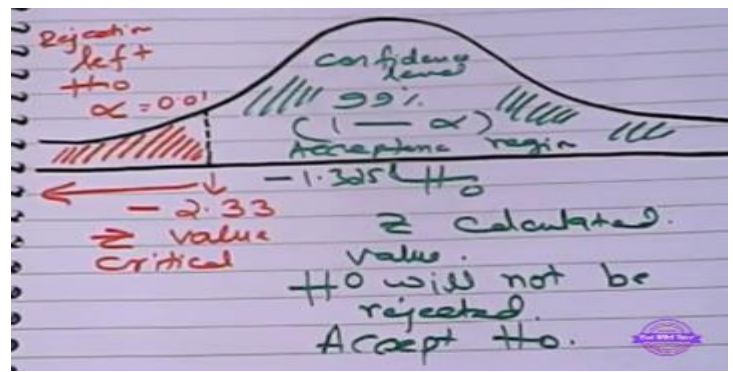 Rejection
left
Ho
α = 0.01
Confidence
level
99%
(1 - α)
Acceptance region
- 1.325 Ho
- 2.33
Z value
critical
Z calculated
value.
Ho will not be
rejected.
Accept Ho.